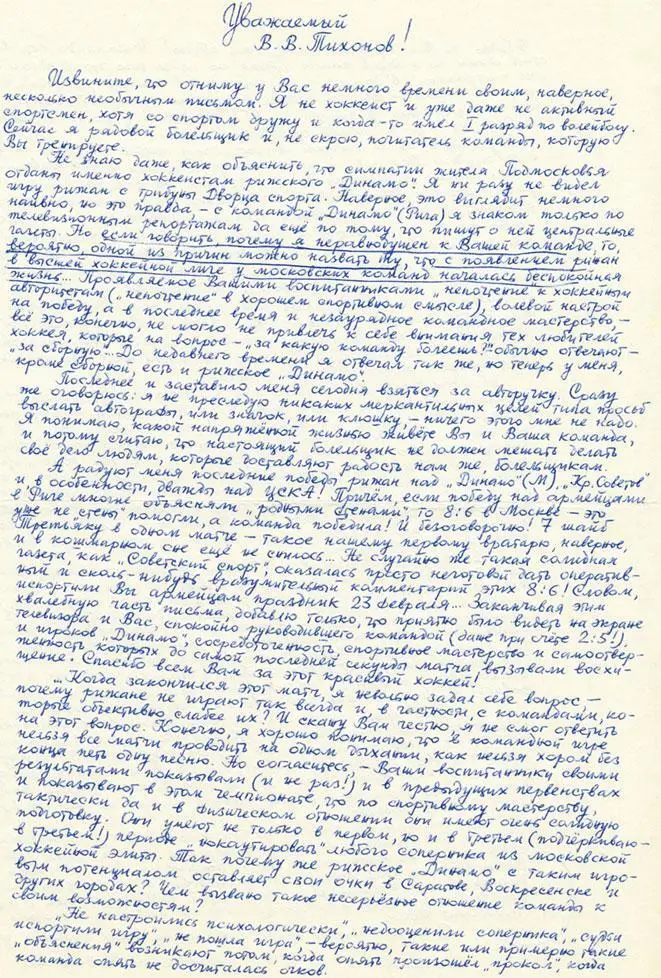 Уважаемый
В. В. Тихонов!
Извините, что отниму у Вас немного времени своим, наверное,
несколько необычным письмом. Я не хоккеист и уже даже не активный
спортсмен, хотя со спортом дружу и когда-то имел I разряд по волейболу.
Сейчас я рядовой болельщик и, не скрою, почитатель команды, которую
Вы тренируете.
Не знаю даже, как объяснить, что симпатии жителя Подмосковья
отданы именно хоккеистам рижского „Динамо". Я ни разу не видел
игру рижан с трибуны Дворца спорта. Наверное, это выглядит немного
наивно, но это правда, – с командой „Динамо" (Рига) я знаком только по
телевизионным репортажам да ещё по тому, что пишут о ней центральные
газеты. Но если говорить, почему я неравнодушен к Вашей команде, то,
вероятно, одной из причин можно назвать ту, что с появлением рижан
в высшей хоккейной лиге у московских команд началась беспокойная
жизнь... Проявляемое Вашими воспитанниками „непочтение" к хоккейным
авторитетам („непочтение" в хорошем спортивном смысле), волевой настрой
на победу, а в последнее время и незаурядное командное мастерство, –
всё это, конечно, не могло не привлечь к себе внимания тех любителей
хоккея, которые на вопрос – „за какую команду болеешь?" обычно отвечают –
„за сборную"... До недавнего времени я отвечал так же, но теперь у меня,
кроме сборной, есть и рижское „Динамо".
Последнее и заставило меня сегодня взяться за авторучку. Сразу
же оговорюсь: я не преследую никаких меркантильных целей типа просьб
выслать автографы, или значок, или клюшку – ничего этого мне не надо.
Я понимаю, какой напряжённой жизнью живёте Вы и Ваша команда,
и потому считаю, что настоящий болельщик не должен мешать делать
своё дело людям, которые доставляют радость нам же, болельщикам.
А радуют меня последние победы рижан над „Динамо" (М), „Кр. Советов"
и в особенности, дважды над ЦСКА! Причём, если победу над армейцами
в Риге многие объясняли „родными стенами", то 8:6 в Москве – это
уже не „стены" помогли, а команда победила! И безоговорочно! 7 шайб
Третьяку в одном матче – такое нашему первому вратарю, наверное,
и в кошмарном сне ещё не снилось... Не случайно же такая солидная
газета, как „Советский спорт", оказалась просто неготовой дать оператив-
ный и сколь-нибудь вразумительный комментарий этих 8:6! Словом,
испортили Вы армейцам праздник 23 февраля... Заканчивая этим
хвалебную часть письма, добавлю только, что приятно было видеть на экране
телевизора и Вас, спокойно руководившего командой (даже при счёте 2:5!),
и игроков „Динамо", сосредоточенность, спортивное мастерство и самоотвер-
женность которых до самой последней секунды матча вызывали восхи-
щение. Спасибо всем Вам за этот красивый хоккей!
... Когда закончился этот матч, я невольно задал себе вопрос, –
почему рижане не играют так всегда и, в частности, с командами, ко-
торые объективно слабее их? И скажу Вам честно, я не смог ответить
на этот вопрос. Конечно, я хорошо понимаю, что в командной игре
нельзя все матчи проводить на одном дыхании, как нельзя хором без
конца петь одну песню. Но согласитесь, – Ваши воспитанники своими
результатами показывали (и не раз!) и в предыдущих первенствах
и показывают в этом чемпионате, что по спортивному мастерству,
тактически да и в физическом отношении они имеют очень солидную
подготовку. Они умеют не только в первом, но и в третьем (подчёркиваю –
в третьем!) периоде „нокаутировать" любого соперника из московской
хоккейной элиты. Так почему же рижское „Динамо" с таким игро-
вым потенциалом оставляет свои очки в Саратове, Воскресенске и
других городах? Чем вызвано такое несерьёзное отношение команды к
своим возможностям?
„Не настроились психологически", „недооценили соперника", „судьи
испортили игру", „не пошла игра", – вероятно, такие или примерно такие
„объяснения" возникают потом, когда опять произошёл „прокол", когда
команда опять не досчиталась очков.